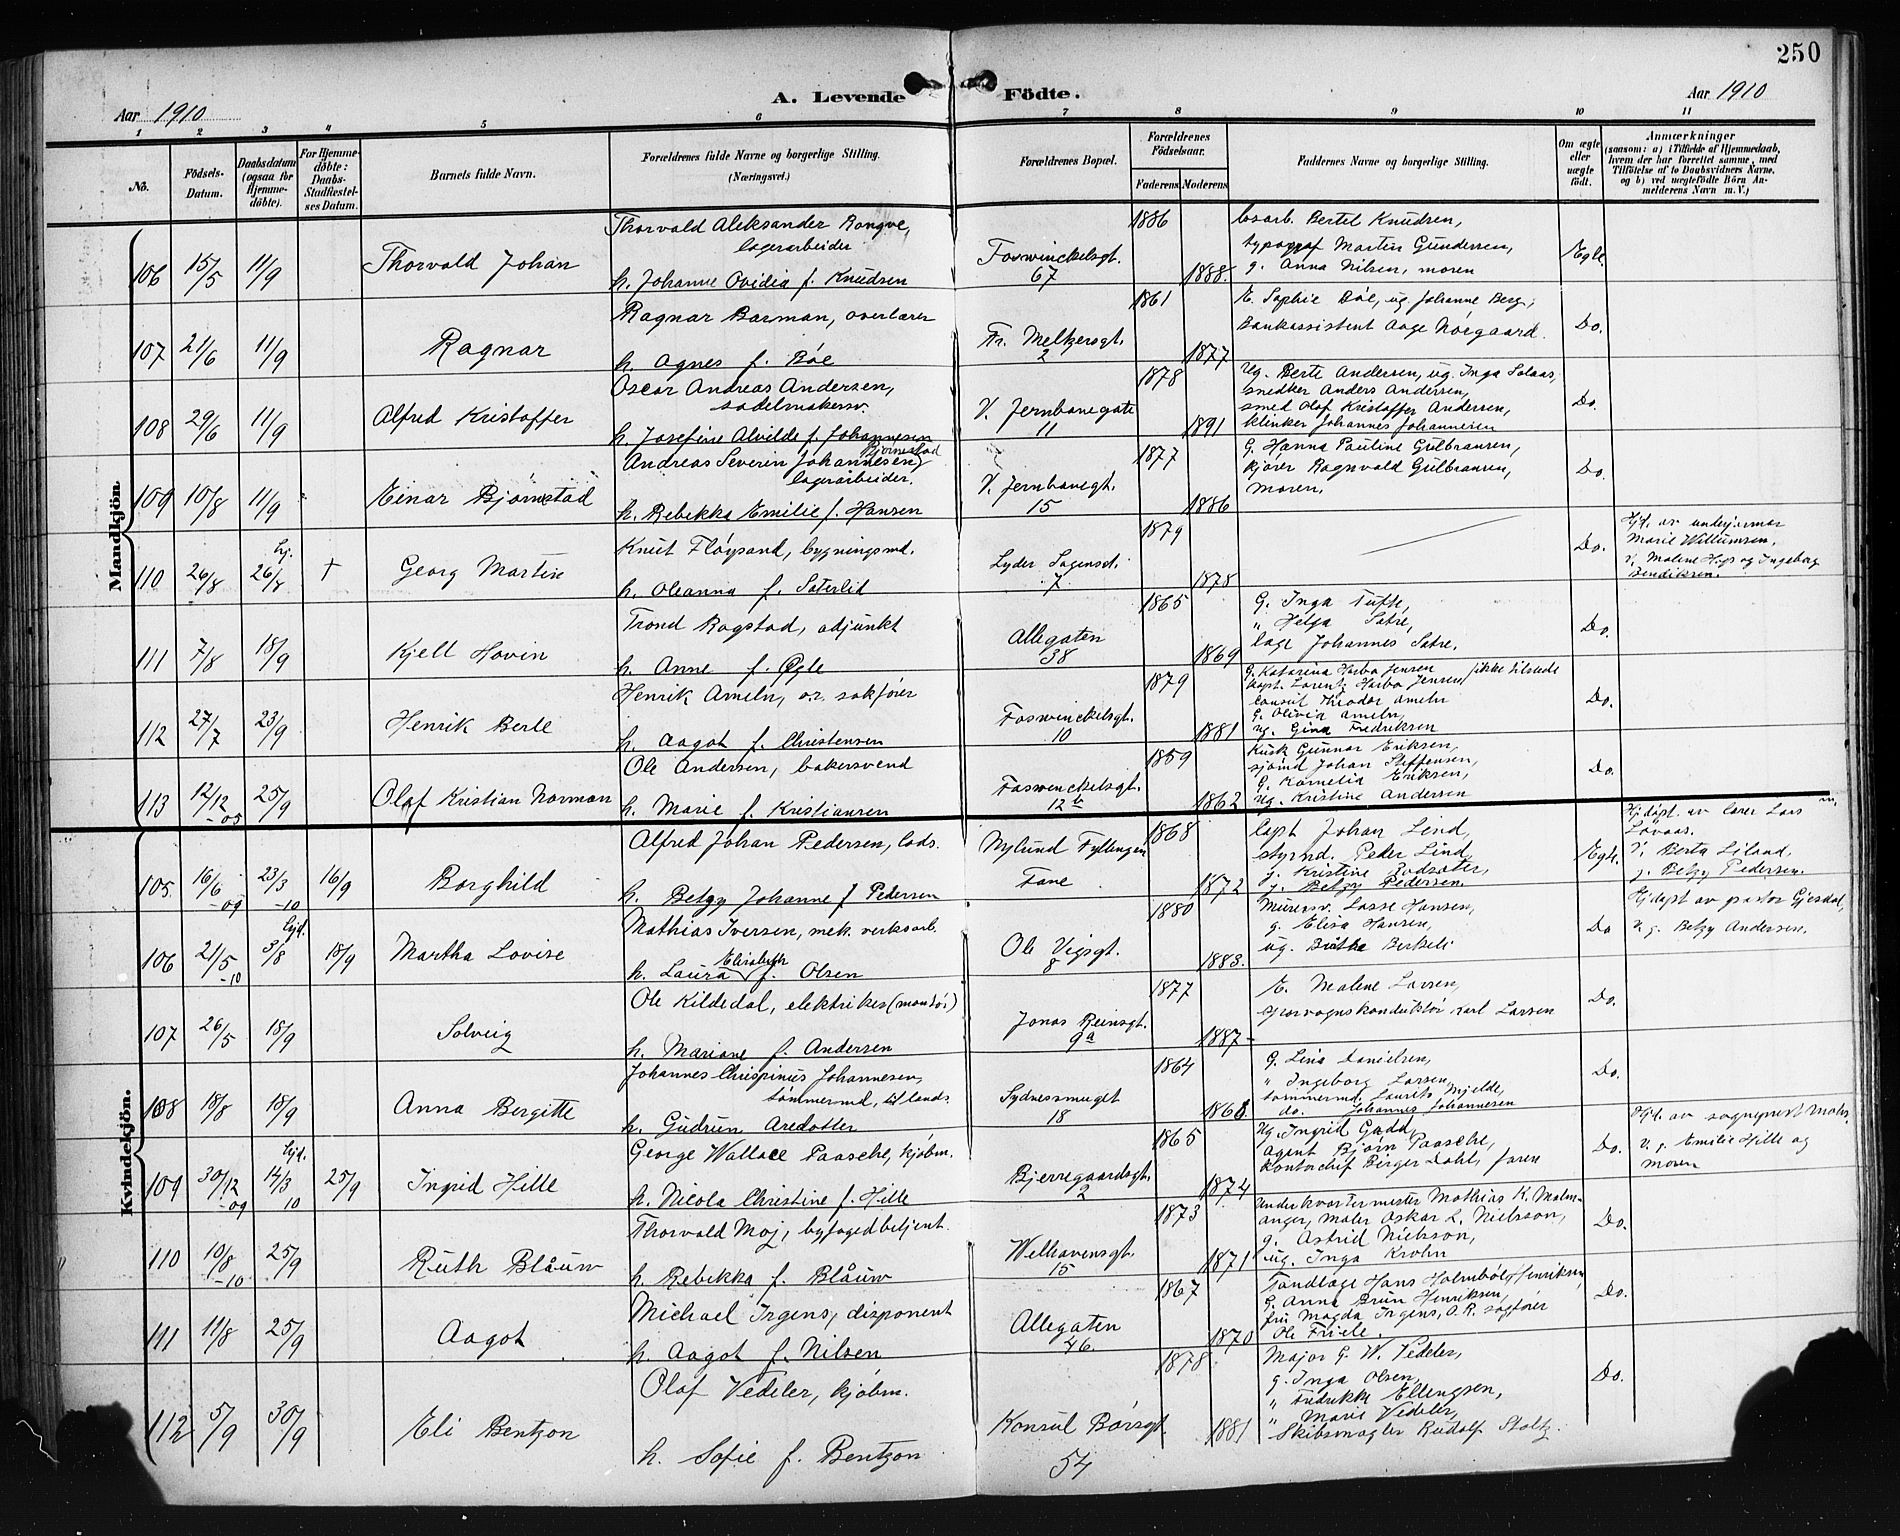 250
Aar 1910
A. Levende Födte.
Aar 1910
1 2 3 4 5 6 7 8 9 10 11
No.
Födsels-Datum.
Daabsdatum (ogsaa for Hjemme-döbte).
For Hjemme-döbte: Daabs-Stadfæstel-ses Datum.
Barnets fulde Navn.
Forældrenes fulde Navne og borgerlige Stilling. (Næringsvei.)
Forældrenes Bopæl.
Forældrenes Födselsaar.
Faderens Moderens
Faddernes Navne og borgerlige Stilling.
Om ægte eller uægte födt.
Anmærkninger
(saasom: a) i Tilfælde af Hjemmedaab, hvem der har forrettet samme, med Tilföielse af to Daabsvidners Navne, og b) ved uægtefödte Börn An-melderens Navn m. V.)
Mandkjön
106 15/5 11/9 Thorvald Johan
Thorvald Aleksander Rongve, lagerarbeider
h. Johanne Ovidia f. Knudsen
Foswinckelsgt. 67
1886 1888.
Bertel Knudsen,
typograf Martin Gundersen,
g. Anna Nilsen, moren
Egte.
107 21/6 11/9 Ragnar
Ragnar Barman, overlærer
h. Agnes f. Böe
Fr. Meltzersgt. 2
1861 1877
E. Sophie Böe, ug. Johanne Berg,
Bankassistent Aage Nörgaard.
Do.
108 29/6 11/9 Alfred Kristoffer
Oscar Andreas Andersen, sadelmakersv.
h. Josefine Alvilde f. Johannesen
V. Jernbanegate 11
1878 1891
Ug. Berte Andersen, ug. Inga Solaas,
snedker Anders Andersen,
smed Olaf Kristoffer Andersen,
klinker Johannes Johannesen
Do.
109 10/8 11/9 Einar Bjørnestad
Andreas Severin Johannesen Bjørnestad lagerarbeider.
h. Rebekka Emilie f. Hansen
V. Jernbanegt. 15
1877 1886
G. Hanna Pauline Gulbransen,
kjører Ragnvald Gulbransen,
moren.
Do.
110 26/8 hj. 26/8 † Georg Martin
Knut Fløysand, bygningssnd.
h. Oleanna f. Sæterlid
Lyder Sagensgt. 7
1879 1878
Do.
Hjd. av underjormor
Marie Willumsen.
V. Malene Hops og Ingeborg
Bendiksen.
111 7/8 18/9 Kjell Hovin
Trond Rogstad, adjunkt
h. Anne f. Øgle
Allegaten 38
1865 1869
G. Inga Tufte,
" Helga Sætre,
læge Johannes Sætre.
Do.
112 27/7 23/9 Henrik Berle
Henrik Ameln, o.r. sakfører
h. Aagot f. Christensen
Foswinckelsgt. 10
1879 1881
G. Katarina Harbo Jensen
kapt. Lorentz Harbo Jensen /ikke tilstede
konsul Theodor Ameln
G. Olivia Ameln,
ug. Gina Fredriksen
Do.
113 12/12 -05 25/9 Olaf Kristian Norman
Ole Andersen, bakersvend
h. Marie f. Kristiansen
Foswinckelsgt. 12b
1859 1862
Kusk Gunnar Eriksen,
sjømd Johan Steffensen,
G. Kornelia Eriksen,
ug. Kristine Andersen
Do.
Kvindekjön.
105. 16/6 -09 23/3 -10 16/9 Borghild
Alfred Johan Pedersen, lods.
h. Betzy Johanne f. Pedersen
Nylund Fyllingen Fane
1868 1872
Capt Johan Lind,
styrmd. Peder Lind
g. Kristine
g. Betzy Pedersen.
Egte.
Hjdøpt. av lærer Lars
Løvaas.
V. Berta Liland,
g. Betzy Pedersen.
106 21/5 -10 hjd. 3/8 18/9 Martha Lovise
Mathias Iversen, mek. verksarb.
h. Laura Elisabeth f. Olsen
Ole Vigsgt. 8
1880 1883.
Muresv. Lasse Hansen,
g. Elisa Hansen,
ug. Birkeli
Do
Hjdøpt av pastor Gjesdal,
V. g. Betzy Andersen.
107 26/5 18/9 Solveig
Ole Kildedal, elektriker (montör)
h. Mariane f. Andersen
Jonas Reinsgt. 9a
1877 1887
E. Malene Larsen,
sporvognskonduktör Karl Larsen
Do.
108 18/8 18/9 Anna Bergitte
Johannes Chrispinus Johannesen, tømmermd, til lands.
h. Gudrun Aredotter
Sydnessmuget 18
1864 1868
G. Lina Danielsen,
" Ingeborg Larsen,
tømmermd. Laurits Mjelde,
do. Johannes Johannesen
Do.
109 30/12 -09 hjd. 14/3 10 25/9 Ingrid Hille
George Wallace Paasche, kjøbm.
h. Nicola Christine f. Hille
Bjerregaardsgt. 2
1865 1874
Ug. Ingrid Gadd,
agent Bjørn Paasche,
kontorchef Birger Dahl, faren
Do.
Hjd. av sogneprest Mohn.
V. g. Emilie Hille og
moren
110 10/8 -10 25/9 Ruth Blåuw
Thorvald Moj, byfogedbetjent.
h. Rebekka f. Blåuw
Welhavensgt. 15
1873 1871
Underkvartermester Mathias K. Malm-
anger, maler Oskar L. Nielsson,
g. Astrid Nielsson,
ug. Inga Krohn
Do.
111 11/8 25/9 Aagot
Michael Irgens, disponent
h. Aagot f. Nilsen
Allegaten 46.
1867 1870
Tandlæge Hans Holmboe Henriksen,
G. Anna Brun Henriksen,
fru Magda Irgens, O.R. sagfører
Ole Friele.
Do.
112 5/9 30/9 Eli Bentzon
Olaf Vedeler, kjøbm.
h. Sofie f. Bentzon
Konsul Börsgt. 54
1878 1881
Major G. W. Vedeler,
g. Inga Olsen,
" Fredrikke Ellengsen,
" Marie Vedeler,
Skibsmægler Rudolf Stoltz.
Do.